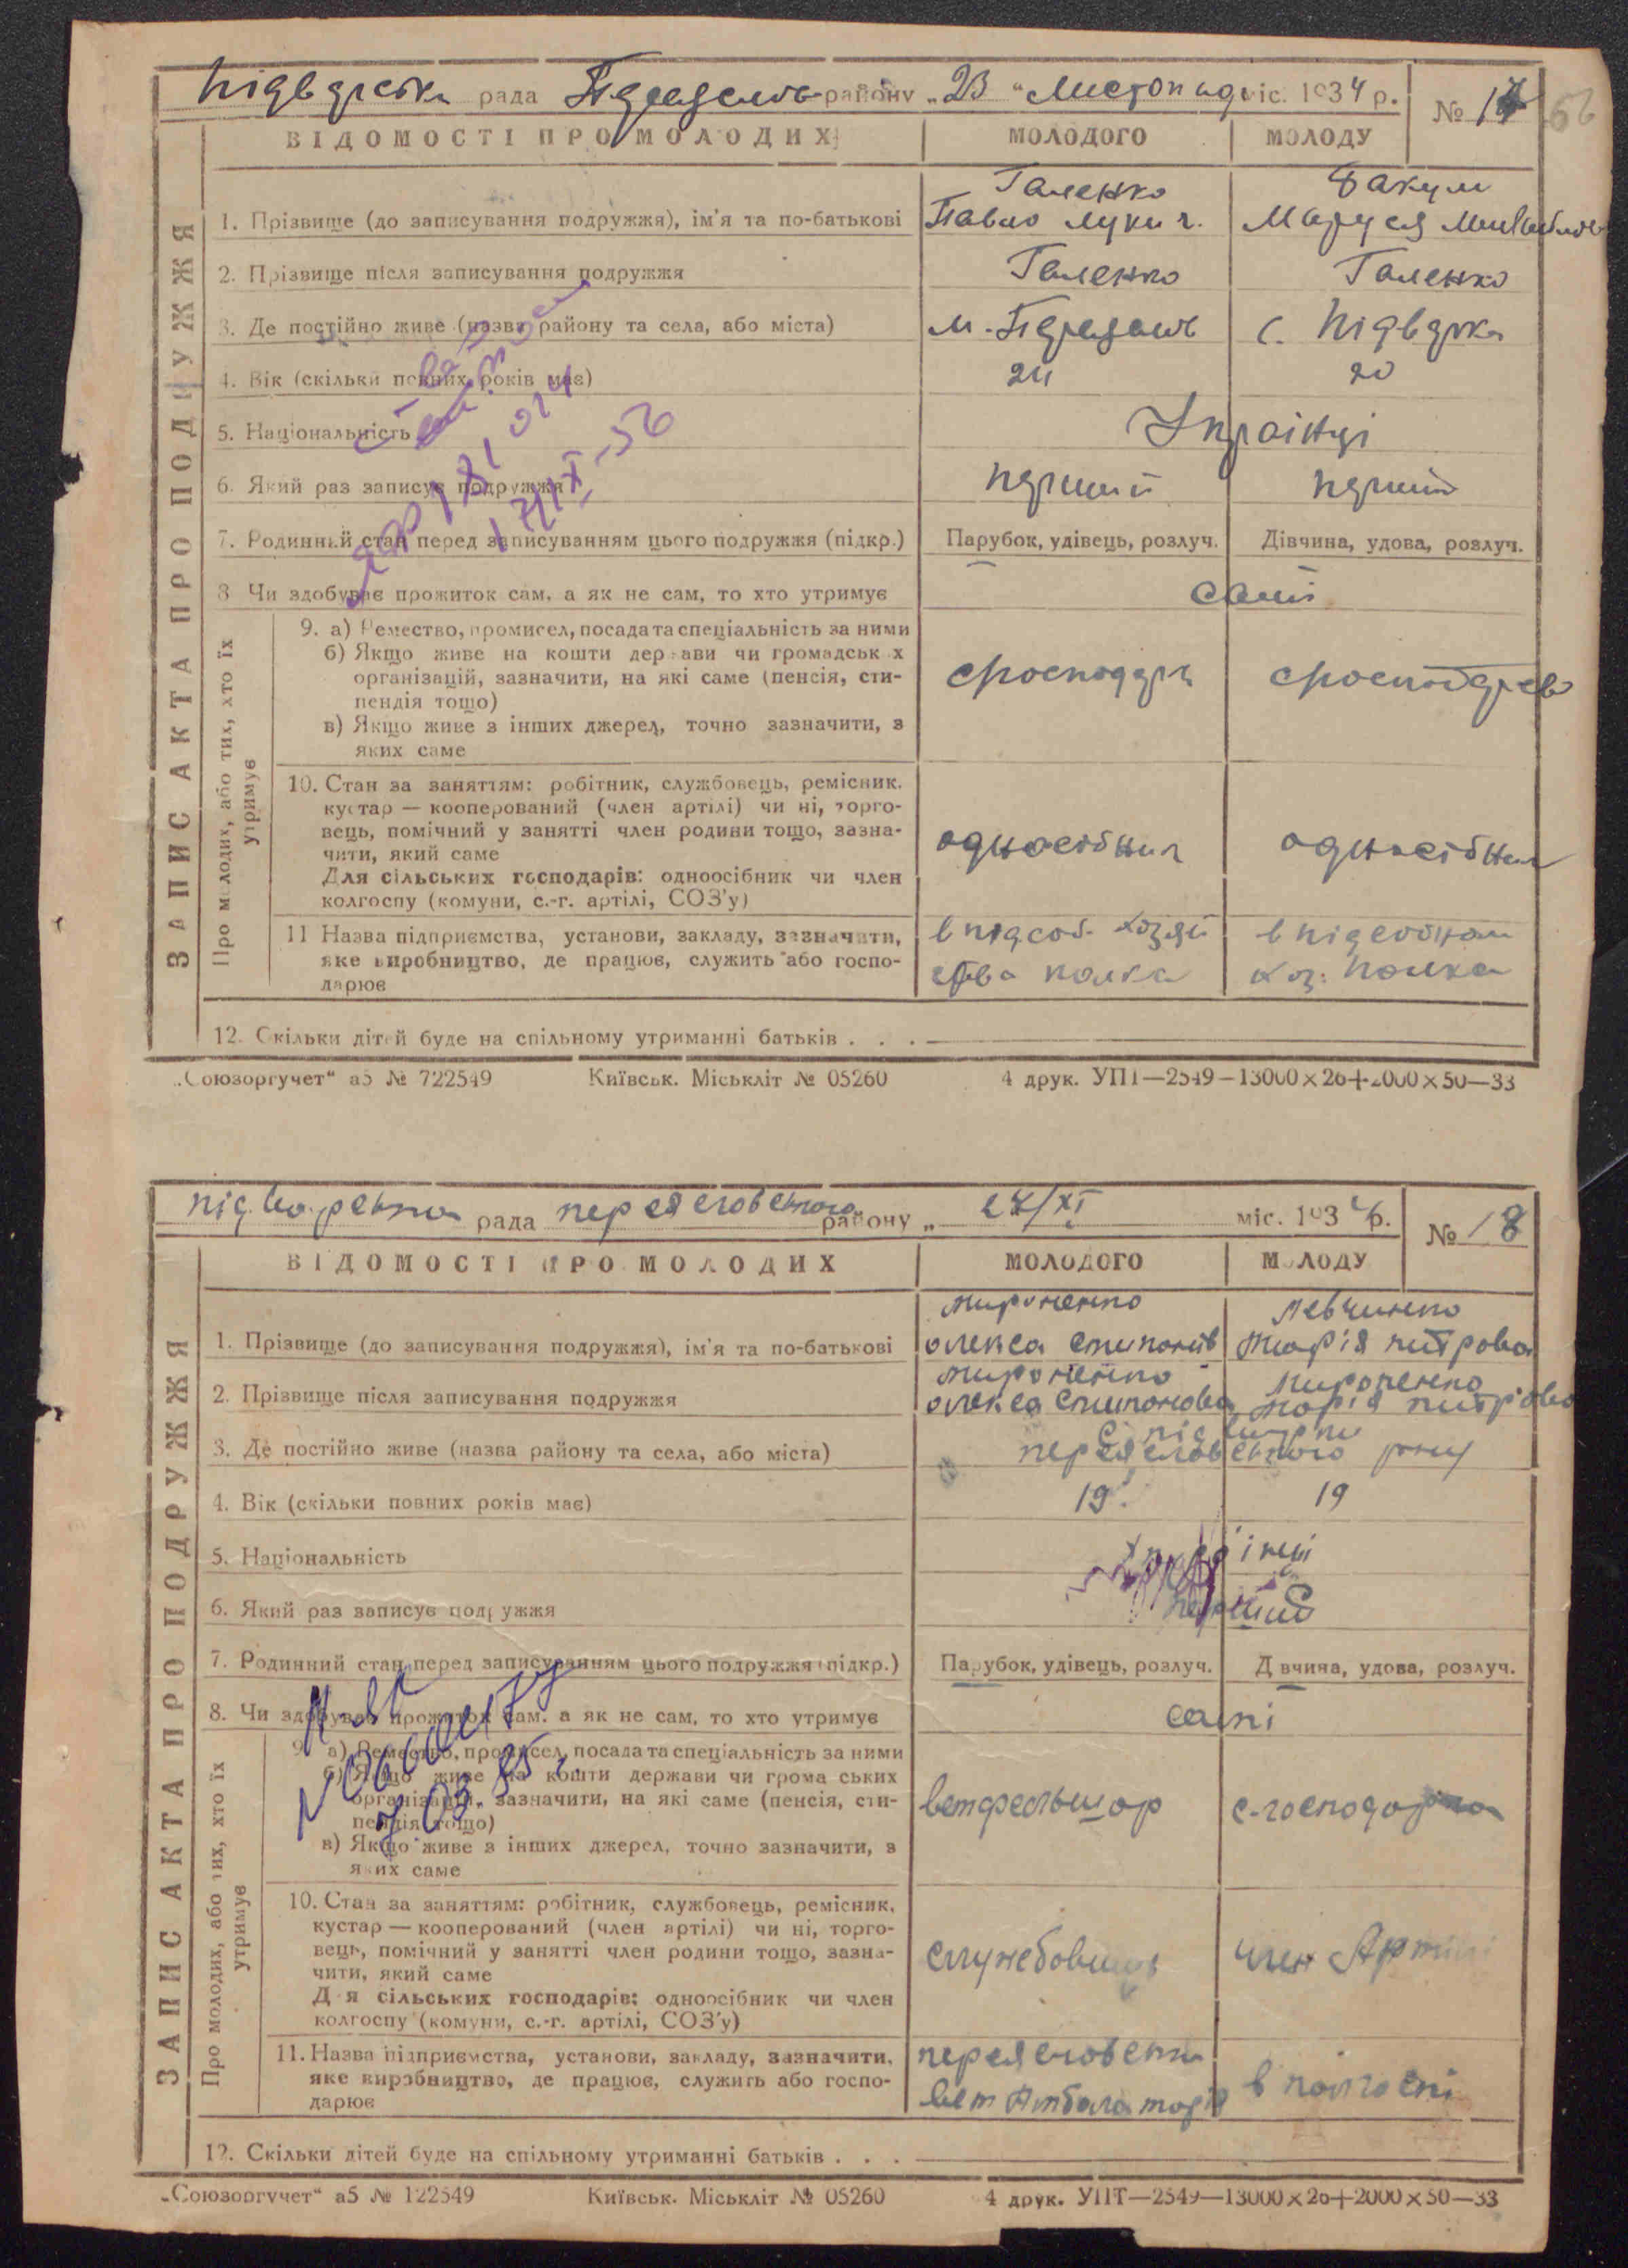 Підварська рада Переяслав району „23“ Листопад міс. 1934 р. № 17
56
ЗАПИС АКТА ПРО ПОДРУЖЖЯ
ВІДОМОСТІ ПРО МОЛОДИХ МОЛОДОГО МОЛОДУ
Галенко Бакум
1. Прізвище (до записування подружжя), ім'я та по-батькові Павло Лукич. Маруся
2. Прізвище після записування подружжя Галенко Галенко
3. Де постійно живе (назва району та села, або міста) м. Переяслав с. Підварки
4. Вік (скільки повних років має) 24 20
5. Національність Українці
6. Який раз записує подружжя перший перший
17/IX-56
7. Родинний стан перед записуванням цього подружжя (підкр.) Парубок, удівець, розлуч. Дівчина, удова, розлуч.
8 Чи здобуває прожиток сам, а як не сам, то хто утримує самі
Про молодих, або тих, хто їх утримує
9. а) Ремество, промисел, посада та спеціальність за ними
б) Якщо живе на кошти держави чи громадських
організацій, зазначити, на які саме (пенсія, сти-
пендія тощо)
в) Якщо живе з інших джерел, точно зазначити, з
яких саме
10. Стан за заняттям: робітник, службовець, ремісник,
кустар — кооперований (член артілі) чи ні, торго-
вець, помічний у занятті член родини тощо, зазна-
чити, який саме односібник односібник
Для сільських господарів: одноосібник чи член
колгоспу (комуни, с.-г. артілі, СОЗ'у)
11 Назва підприємства, установи, закладу, зазначити, в підсоб. хозяй в підсобном
яке виробництво, де працює, служить або госпо- ства полка хоз. полка
дарює
12. Скільки дітей буде на спільному утриманні батьків . . .
„Союзоргучет“ а5 № 722549 Київськ. Міськліт № 05260 4 друк. УПТ—2549—13000×26+2000×50—33
підварська рада переяславського району „ 27/XI міс. 1934 р. № 18
ЗАПИС АКТА ПРО ПОДРУЖЖЯ
ВІДОМОСТІ ПРО МОЛОДИХ МОЛОДОГО МОЛОДУ
Мироненко Левченко
1. Прізвище (до записування подружжя), ім'я та по-батькові Олекса Марія питрова
Мироненко Мироненко
2. Прізвище після записування подружжя Олекса Марія питрова
с. підварки
3. Де постійно живе (назва району та села, або міста) переяславського
4. Вік (скільки повних років має) 19 19
5. Національність українці
6. Який раз записує подружжя перший
7. Родинний стан перед записуванням цього подружжя (підкр.) Парубок, удівець, розлуч. Дівчина, удова, розлуч.
8. Чи здобуває прожиток сам, а як не сам, то хто утримує самі
Про молодих, або тих, хто їх утримує
9. а) Ремество, промисел, посада та спеціальність за ними
б) Якщо живе на кошти держави чи громадських
організацій, зазначити, на які саме (пенсія, сти- ветфельшор с-господарка
пендія тощо)
в) Якщо живе з інших джерел, точно зазначити, з
яких саме
10. Стан за заняттям: робітник, службовець, ремісник,
кустар — кооперований (член артілі) чи ні, торго-
вець, помічний у занятті член родини тощо, зазна- служебовиць член Артілі
чити, який саме
Для сільських господарів: одноосібник чи член
колгоспу (комуни, с.-г. артілі, СОЗ'у)
11. Назва підприємства, установи, закладу, зазначити,
яке виробництво, де працює, служить або госпо- вет Амбулаторія в колгоспі
дарює
12. Скільки дітей буде на спільному утриманні батьків . . .
„Союзоргучет“ а5 № 122549 Київськ. Міськліт № 05260 4 друк. УПТ—2549—13000×26+2000×50—33